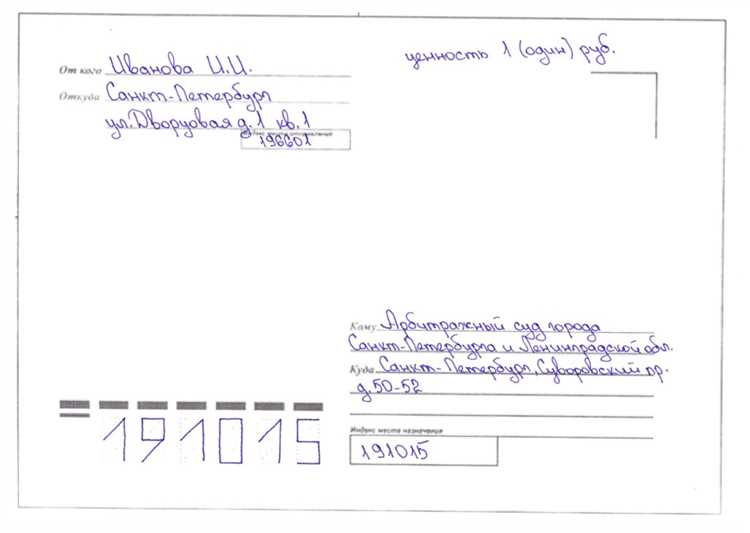 ценность 1 (один) руб.
От кого Иванова И.И.
Откуда Санкт-Петербург
ул. Дворцовая д. 1 кв. 1
196601
Кому Арбитражный суд города
Санкт-Петербурга и Ленинградской обл.
Куда Санкт-Петербург, Суворовский пр.
д. 50-52
Индекс места назначения
191015
191015